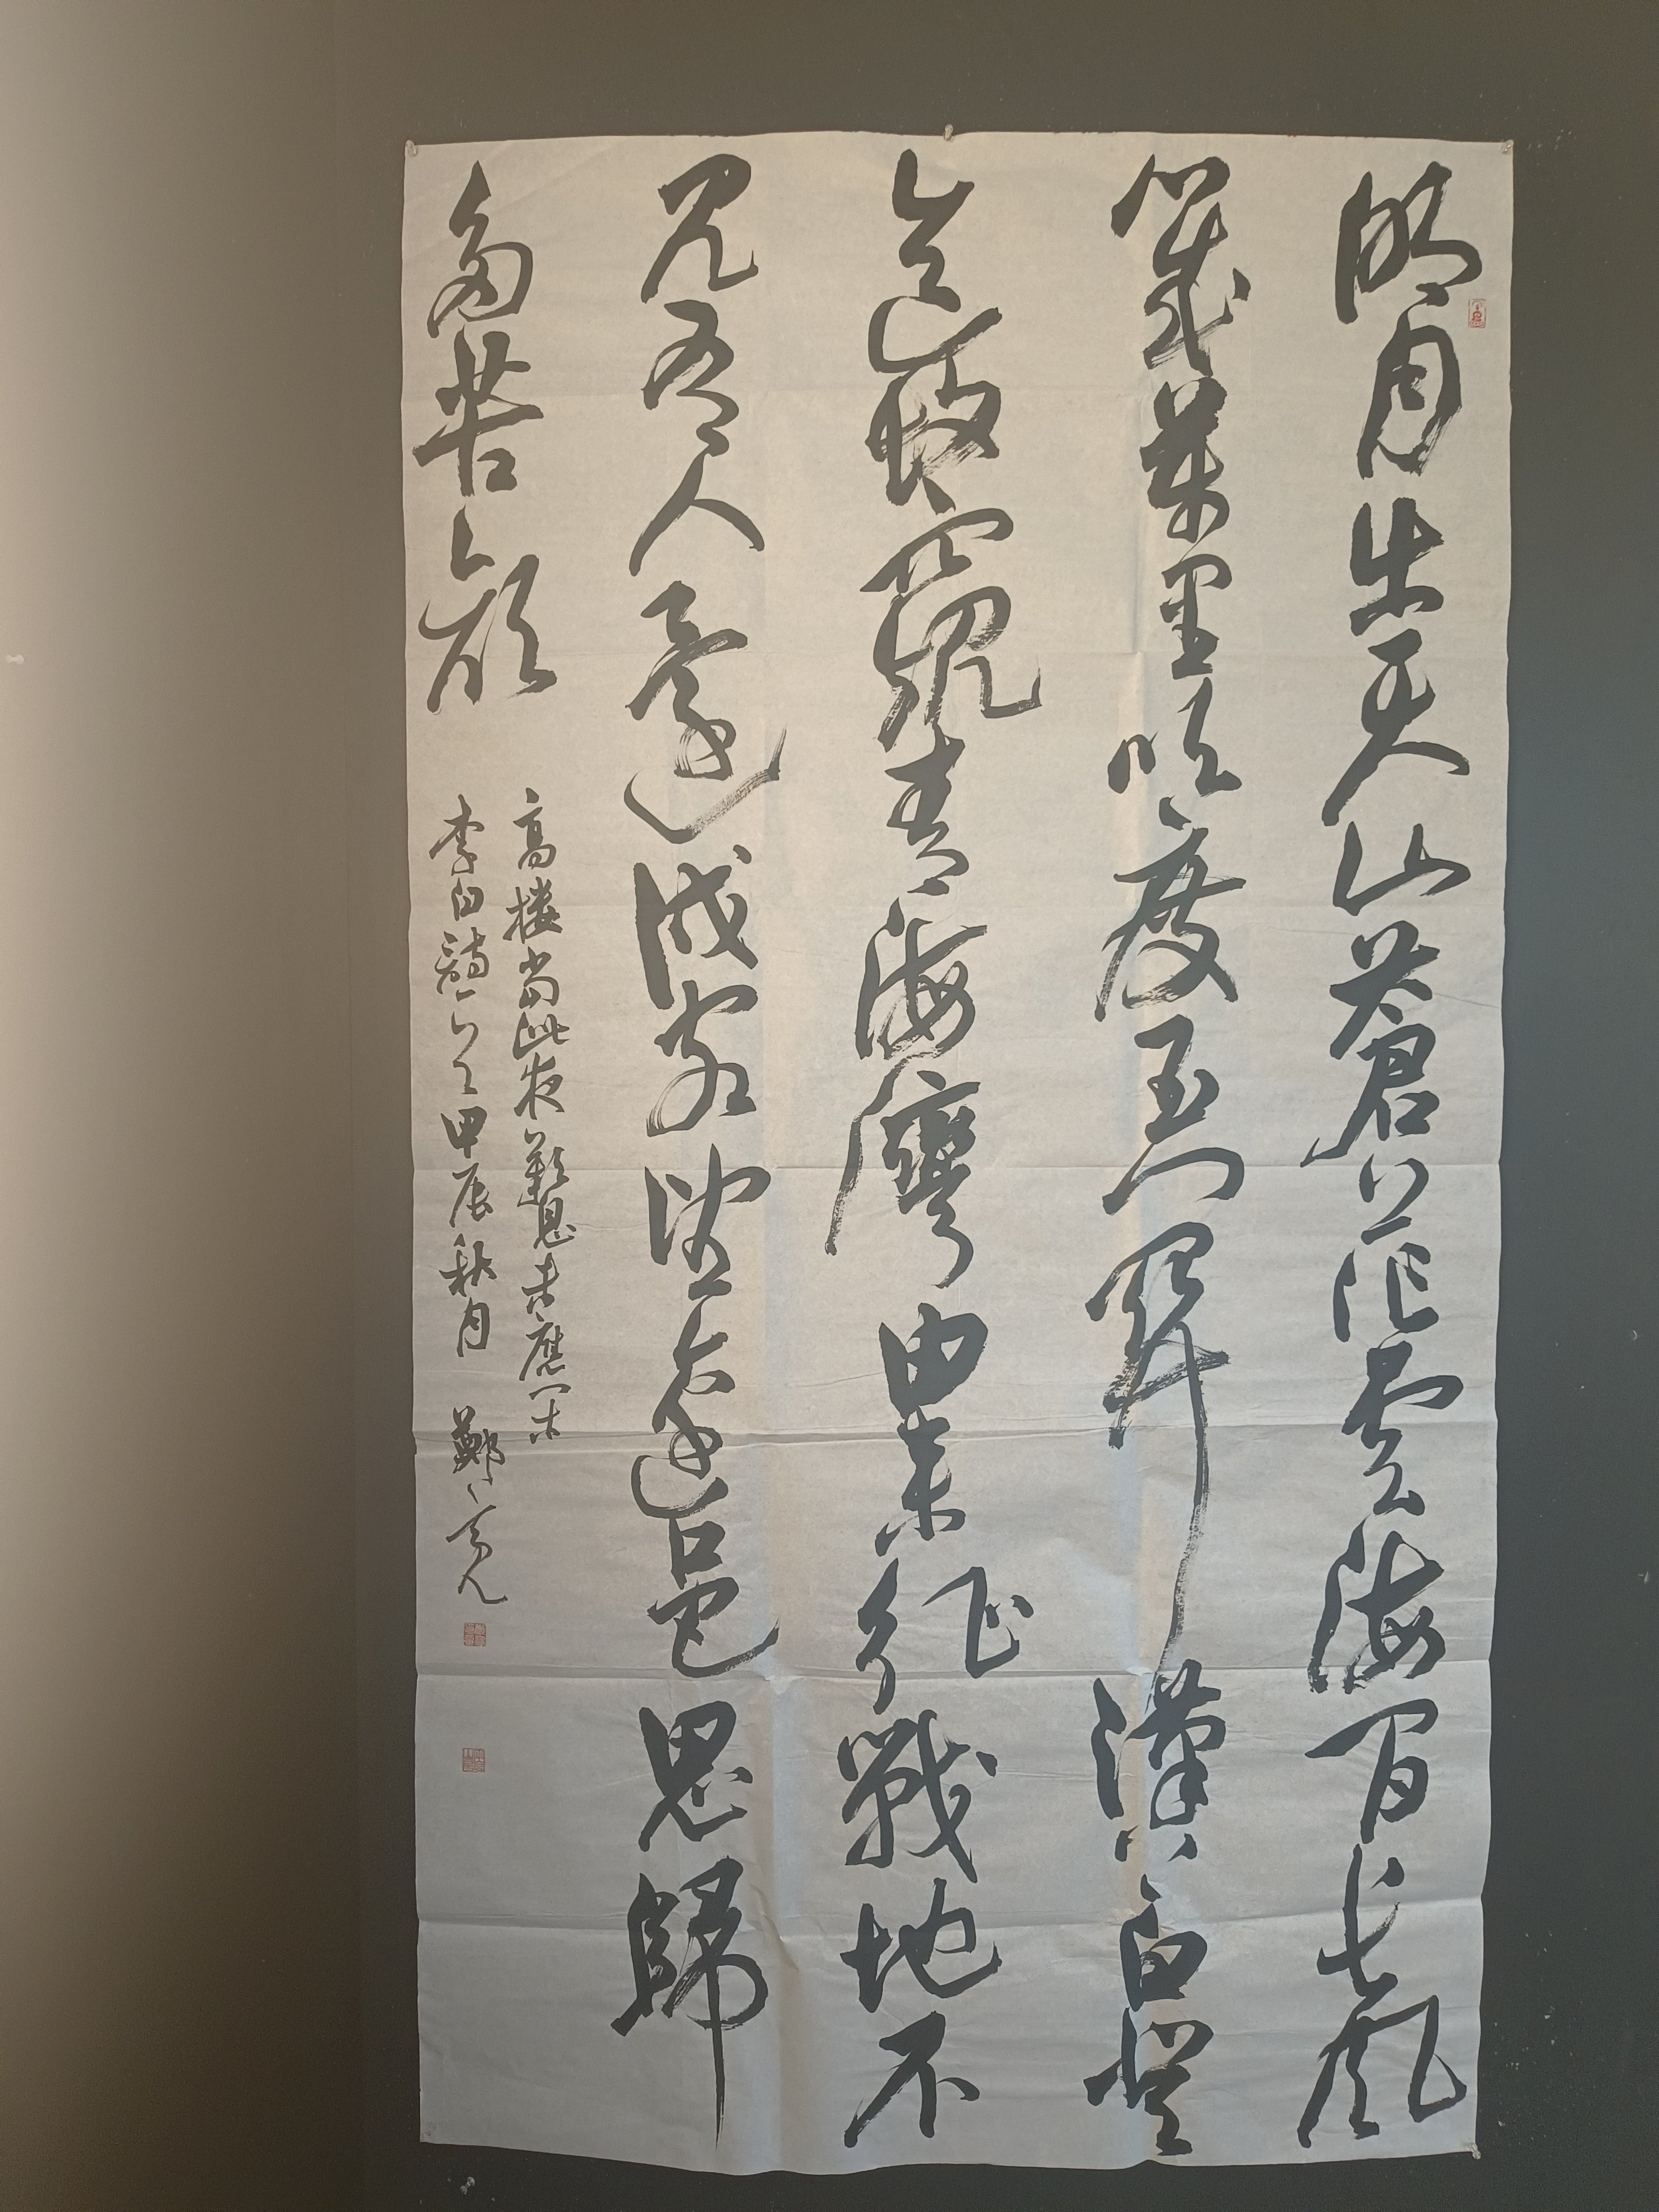 明月出天山蒼茫雲海間長風
幾萬里吹度玉門關漢下白登
道胡窺青海灣由來征戰地不
見有人還戍客望邊邑思歸
多苦顏
高樓當此夜歎息未應閑
李白詩甲辰秋月鄭